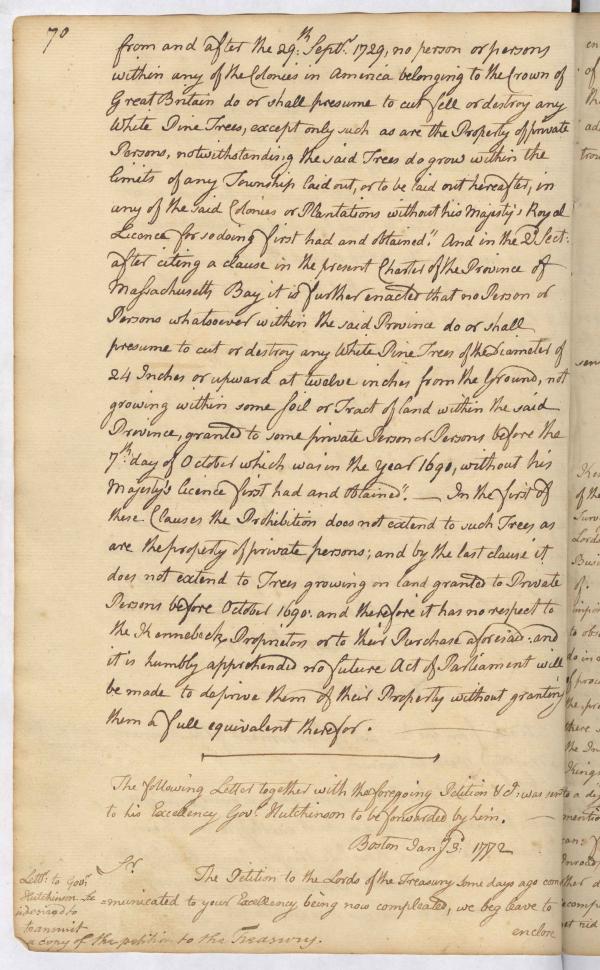 70
from and after the 29th. Septr. 1729, no person or persons
within any of the Colonies in America belonging to the Crown of
Great Britain do or shall presume to cut fell or destroy any
White Pine Trees, except only such as are the Property of private
Persons, notwithstanding the said Trees do grow within the
limits of any Township laid out, or to be laid out hereafter, in
any of the said Colonies or Plantations without his Majesty's Royal
Licence for so doing first had and obtained". And in the 2d Sect:
after citing a clause in the present Charter of the Province of
Massachusetts Bay it is further enacted that no Person or
Persons whatsoever within the said Province do or shall
presume to cut or destroy any White Pine Trees of the Diameter of
24 Inches or upward at twelve inches from the Ground, not
growing within some soil or Tract of land within the said
Province, granted to some private Person or Persons before the
7th. day of October which was in the year 1690, without his
Majesty's licence first had and obtained". — In the first of
these Clauses the Prohibition does not extend to such Trees as
are the property of private persons; and by the last clause it
does not extend to Trees growing on land granted to Private
Persons before October 1690: and therefore it has no respect to
the Kennebeck Proprietors or to their Purchase aforesaid: and
it is humbly apprehended no future Act of Parliament will
be made to deprive them of their Property without granting
them a full equivalent therefor.
The following Letter together with the foregoing Petition &c: was sent
to his Excellency Govr. Hutchinson to be forwarded by him. —
Boston Jany. 3d. 1772
Sr.
The Petition to the Lords of the Treasury some days ago com
=municated to your Excellency being now compleated, we beg leave to
enclose
Lettr. to Govr.
Hutchinson. he
is desired to
transmit
a copy of the petition to the Treasury.